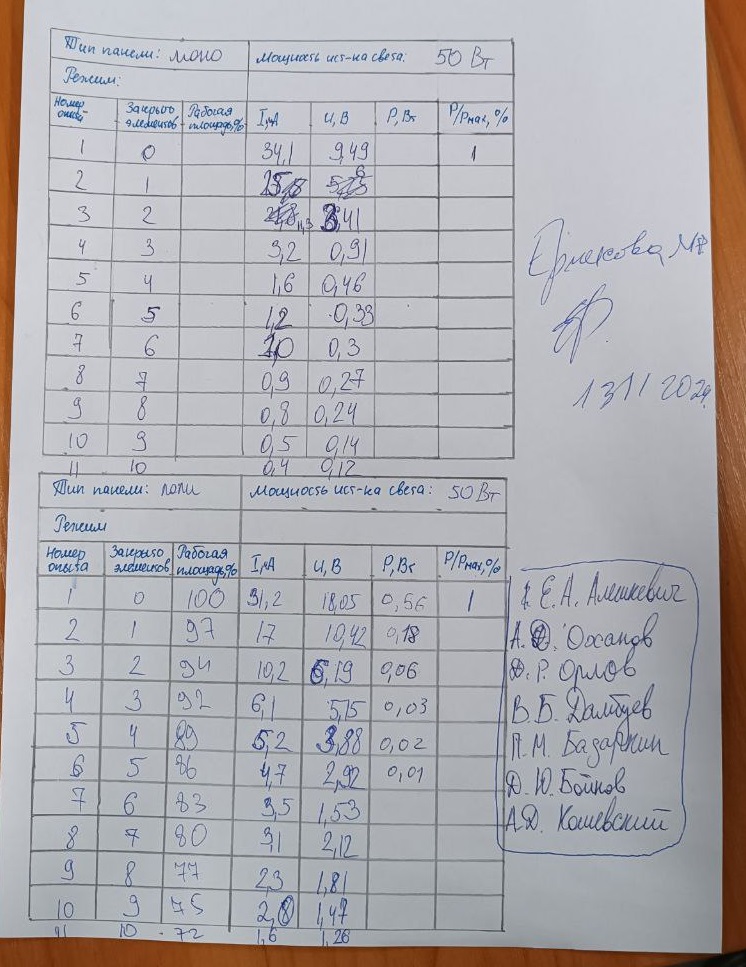 Тип панели: моно Мощность ист-ка света: 50 Вт
Режим:
Номер опыта Закрыто элементов Рабочая площадь,% I, мА U, В P, Вт P/Pмах, %
1 0 34,1 9,49 1
2 1
3 2 11,3 3,41
4 3 3,2 0,91
5 4 1,6 0,46
6 5 1,2 0,33
7 6 1,0 0,3
8 7 0,9 0,27
9 8 0,8 0,24
10 9 0,5 0,14
11 10 0,4 0,12
Ермакова
13 11 2024
Тип панели: поли Мощность ист-ка света: 50 Вт
Режим
Номер опыта Закрыто элементов Рабочая площадь,% I, мА U, В P, Вт P/Pмах, %
1 0 100 31,2 18,05 0,56 1
2 1 97 17 10,42 0,18
3 2 94 10,2 6,19 0,06
4 3 92 6,1 5,15 0,03
5 4 89 5,2 3,88 0,02
6 5 86 4,7 2,92 0,01
7 6 83 3,5 1,53
8 7 80 3,1 2,12
9 8 77 2,3 1,81
10 9 75 2,0 1,47
11 10 72 1,6 1,26
Е.А. Алешкевич
А. Оханов
Р. Орлов
В.Б. Дамбуев
П.М. Базаркин
Д.Ю. Бойков
А.Д. Кошевский